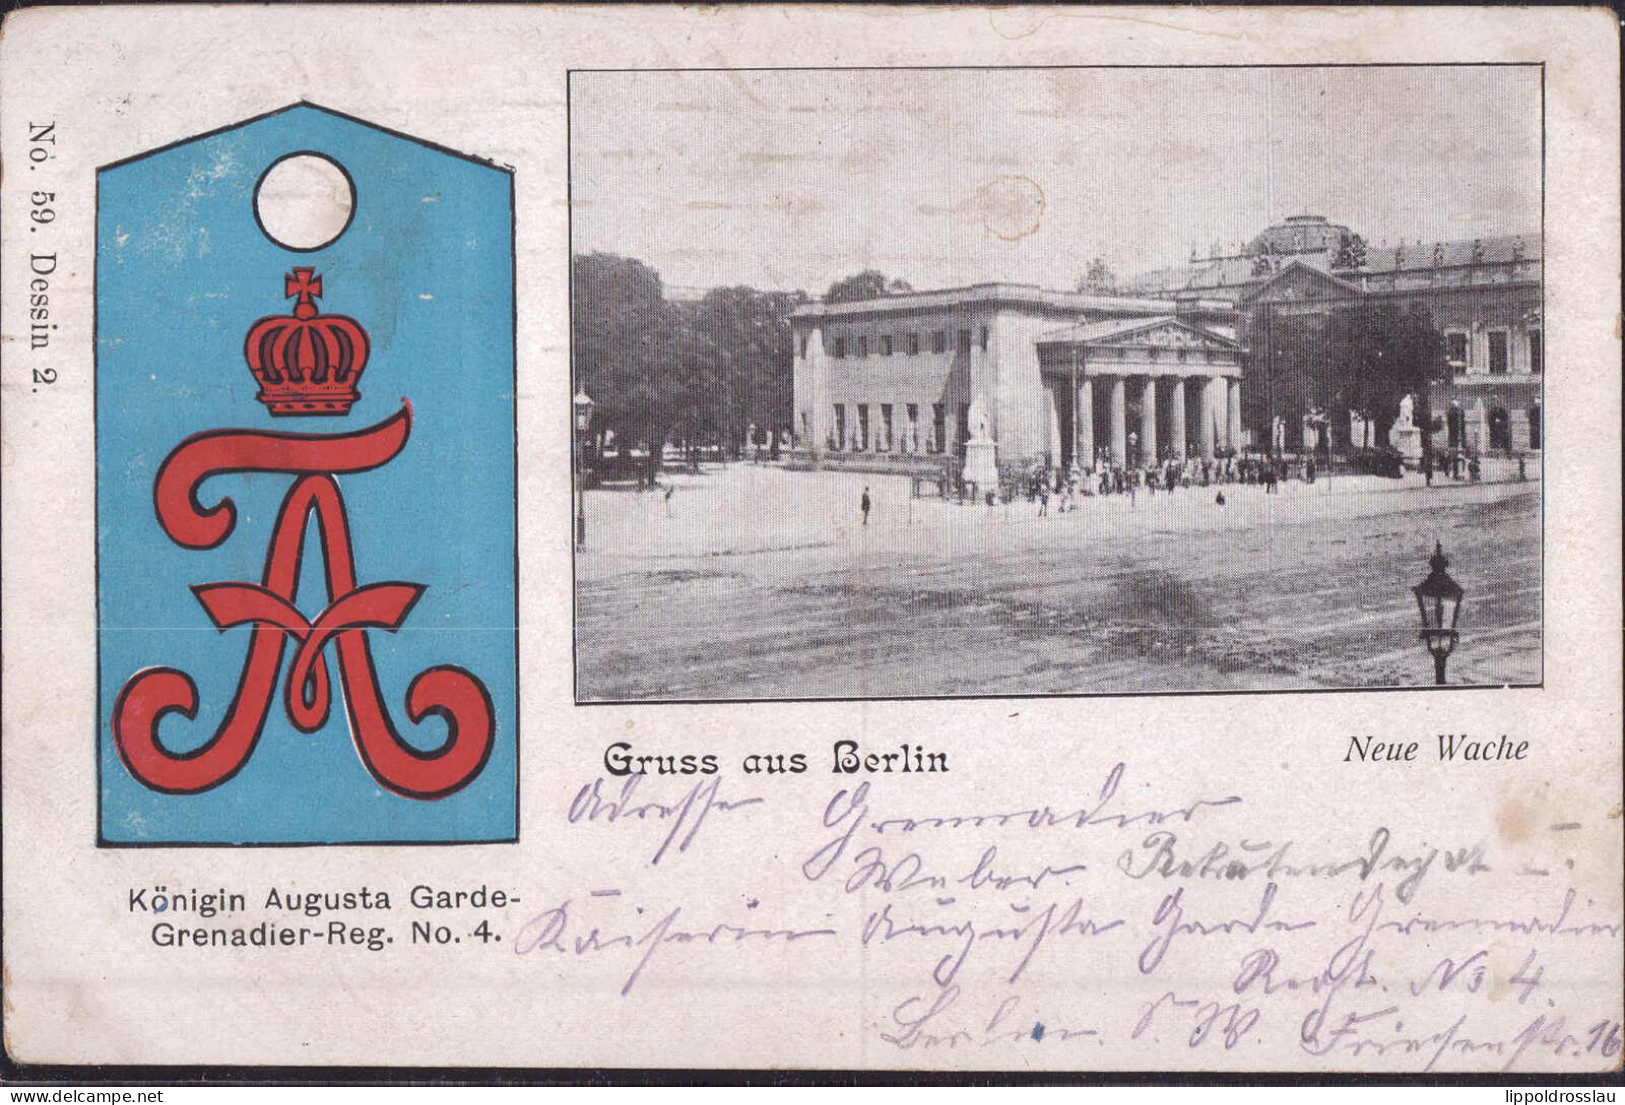 No. 59. Dessin 2.
Königin Augusta Garde-
Grenadier-Reg. No. 4.
Gruss aus Berlin
Neue Wache
Adresse Grennadier
Weber. Rekrutendepot I.
Kaiserin Augusta Garde Grennadier
Regt. No 4.
Berlin. S. W. Friesenstr. 16
delcampe.net
lippoldrosslau